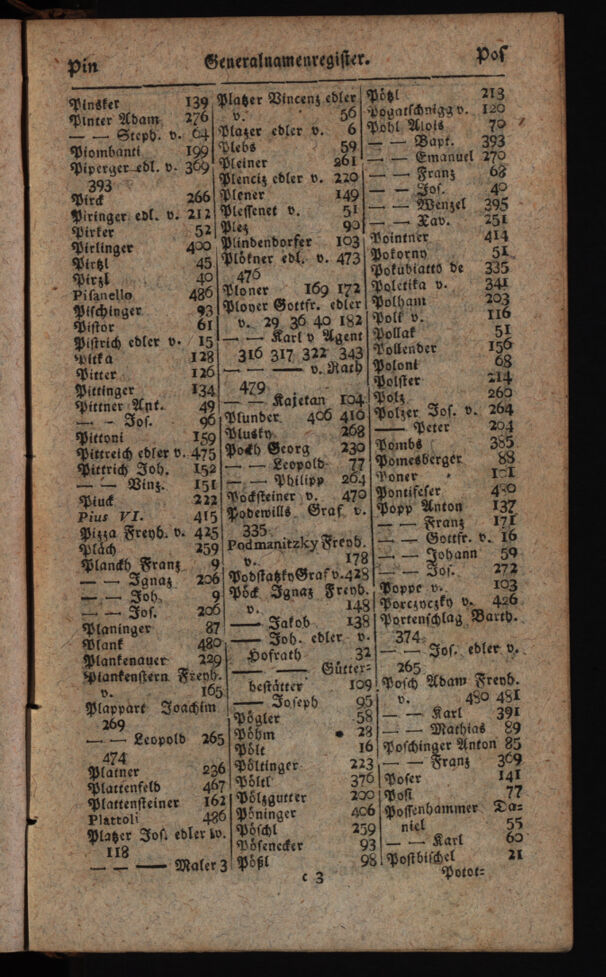 Pin Generalnamenregister. Pos
Pinsker 139
Pinter Adam 276
— — Steph. v. 64
Piombanti 199
Piperger edl. v. 369
393
Pirck 266
Piringer edl. v. 212
Pirker 52
Pirlinger 400
Pirtzl 45
Pirzl 40
Pisanello 486
Pischinger 93
Pistor 61
Pistrich edler v. 15
Pitka 128
Pitter 126
Pittinger 134
Pittner Ant. 49
— — Jos. 96
Pittoni 159
Pittreich edler v. 475
Pittrich Joh. 152
— — Vinz. 151
Piuck 222
Pius VI. 415
Pizza Freyh. v. 425
Pläch 259
Planckh Franz 9
— — Ignaz 206
— — Joh. 9
— — Jos. 206
Planinger 87
Plank 480
Plankenauer 229
Plankenstern Freyh.
v. 165
Plappart Joachim
269
— — Leopold 265
474
Platner 236
Plattenfeld 467
Plattensteiner 162
Plattoli 486
Platzer Jos. edler v.
118
— — — Maler 3
Platzer Vincenz edler
v. 56
Plazer edler v. 6
Plebs 59
Pleiner 261
Plenciz edler v. 220
Plener 149
Plessenet v. 51
Plez 90
Plindendorfer 103
Plökner edl. v. 473
476
Ploner 169 172
Ployer Gottfr. edler
v. 29 36 40 182
— — Karl v Agent
316 317 322 343
— — — v. Rath
479
— — Kajetan 104
Plunder 406 410
Plusky 268
Pockh Georg 230
— — Leopold 77
— — Philipp 264
Pocksteiner v. 470
Podewills Graf v.
335
Podmanitzky Freyh.
v. 178
Podstatzky Graf v. 428
Pöck Ignaz Freyh.
v. 148
— — Jakob 138
— — Joh. edler v.
Hofrath 32
— — — Gütter-
bestätter 109
— — Joseph 95
Pögler 58
Pöhm 28
Pölt 16
Pöltinger 223
Pöltl 376
Pölzgutter 200
Pöninger 406
Pöschl 259
Pösenecker 93
Pößl 98
Pötzl 213
Pogatschnigg v. 120
Pohl Alois 70
— — Bapt. 393
— — Emanuel 270
— — Franz 68
— — Jos. 40
— — Wenzel 395
— — Xav. 251
Pointner 414
Pokorny 51
Pokubiatto de 335
Poletika v. 341
Polham 203
Polk v. 116
Pollak 51
Pollender 156
Poloni 68
Polster 214
Polz 260
Polzer Jos. v. 264
— — Peter 204
Pombs 385
Pomesberger 88
Poner 101
Pontifeser 480
Popp Anton 137
— — Franz 171
— — Gottfr. v. 16
— — Johann 59
— — Jos. 272
Poppe v. 103
Porczyczky v. 426
Portenschlag Barth.
374
— — Jos. edler v.
265
Posch Adam Freyh.
v. 480 481
— — Karl 391
— — Mathias 89
Poschinger Anton 85
— — Franz 369
Poser 141
Posi 77
Possenhammer Da-
niel 55
— — Karl 60
Postbischel 21
c 3 Potot-